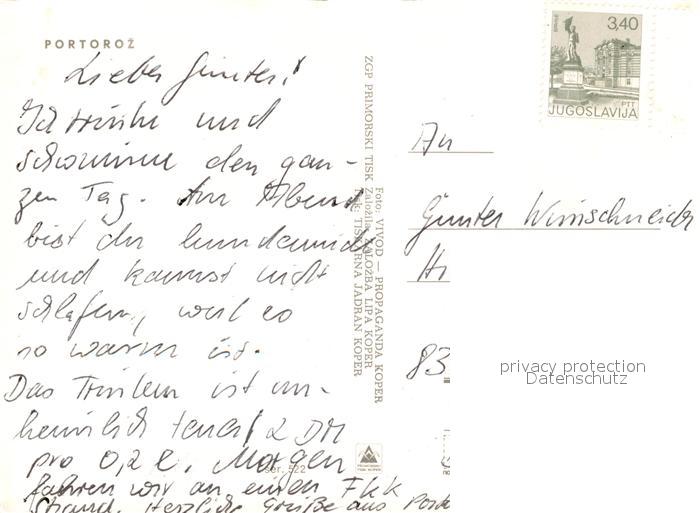 PORTOROŽ
Lieber Günter!
Ich trinke und
schwimme den gan-
zen Tag. Am Abend
bist du hundemüde
und kannst nicht
schlafen, weil es
so warm ist.
Das Trinken ist un-
heimlich teuer, 2 DM
pro 0,2 l. Morgen
fahren wir an einen FKK
Strand. Herzliche Grüße aus
ser. 522
ZGP PRIMORSKI TISK KOPER
Foto: VIVOD — PROPAGANDA KOPER
Založila: ZALOŽBA LIPA KOPER
Tisk: TISKARNA JADRAN KOPER
3,40
PTT
JUGOSLAVIJA
An
Günter
83
privacy protection
Datenschutz